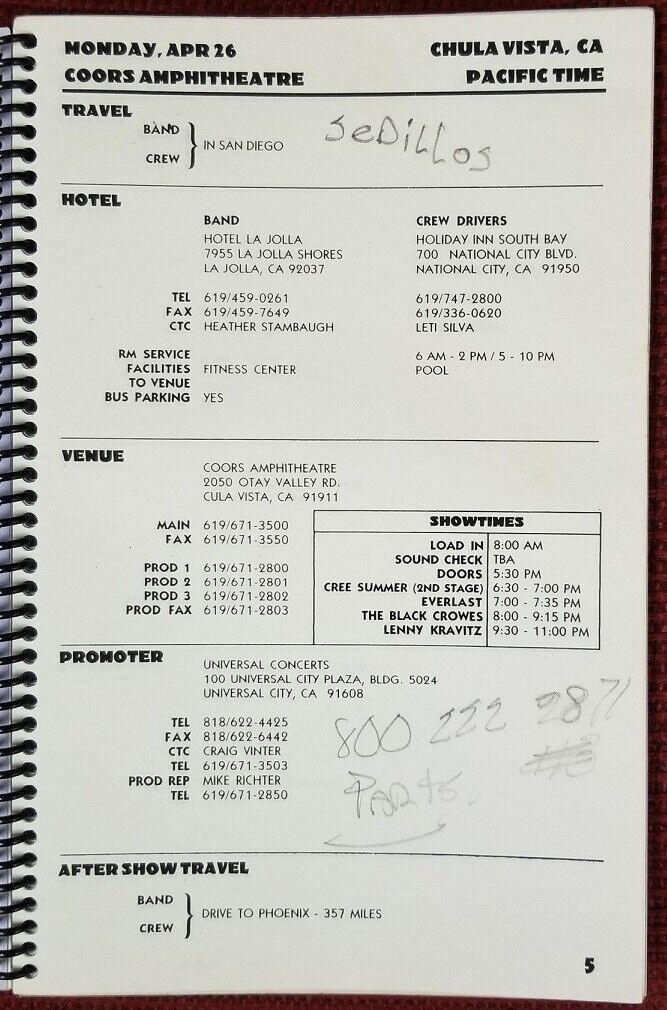 MONDAY, APR 26 CHULA VISTA, CA
COORS AMPHITHEATRE PACIFIC TIME
TRAVEL
BAND
CREW
IN SAN DIEGO
SeDiLLOS
HOTEL
BAND CREW DRIVERS
HOTEL LA JOLLA HOLIDAY INN SOUTH BAY
7955 LA JOLLA SHORES 700 NATIONAL CITY BLVD.
LA JOLLA, CA 92037 NATIONAL CITY, CA 91950
TEL 619/459-0261 619/747-2800
FAX 619/459-7649 619/336-0620
CTC HEATHER STAMBAUGH LETI SILVA
RM SERVICE 6 AM - 2 PM / 5 - 10 PM
FACILITIES FITNESS CENTER POOL
TO VENUE
BUS PARKING YES
VENUE
COORS AMPHITHEATRE
2050 OTAY VALLEY RD.
CULA VISTA, CA 91911
MAIN 619/671-3500
FAX 619/671-3550
PROD 1 619/671-2800
PROD 2 619/671-2801
PROD 3 619/671-2802
PROD FAX 619/671-2803
SHOWTIMES
LOAD IN 8:00 AM
SOUND CHECK TBA
DOORS 5:30 PM
CREE SUMMER (2ND STAGE) 6:30 - 7:00 PM
EVERLAST 7:00 - 7:35 PM
THE BLACK CROWES 8:00 - 9:15 PM
LENNY KRAVITZ 9:30 - 11:00 PM
PROMOTER
UNIVERSAL CONCERTS
100 UNIVERSAL CITY PLAZA, BLDG. 5024
UNIVERSAL CITY, CA 91608
TEL 818/622-4425
FAX 818/622-6442
CTC CRAIG VINTER
TEL 619/671-3503
PROD REP MIKE RICHTER
TEL 619/671-2850
800 222 2871
PARts.
AFTER SHOW TRAVEL
BAND
CREW
DRIVE TO PHOENIX - 357 MILES
5